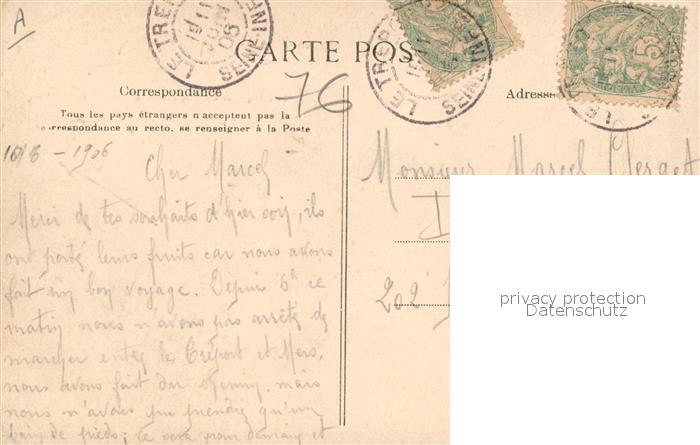 A
LE TREPORT
SEINE INFRE
CARTE POS
LE TREPORT
SEINE INFRE
5
76
Correspondance
Adresse
Tous les pays étrangers n acceptent pas la
correspondance au recto, se renseigner à la Poste
1906
Cher Marcel
Monsieur Marcel
Merci de tes souhaits d'hier soir, ils
ont porté leurs fruits car nous avons
fait un bon voyage. Depuis 6h ce
matin nous n'avons pas arrêté de
marcher entre le Tréport et Mers,
nous avons fait du chemin, mais
nous n'avons pu prendre qu'un
bain de pieds; ce sera pour demain et
202
privacy protection
Datenschutz